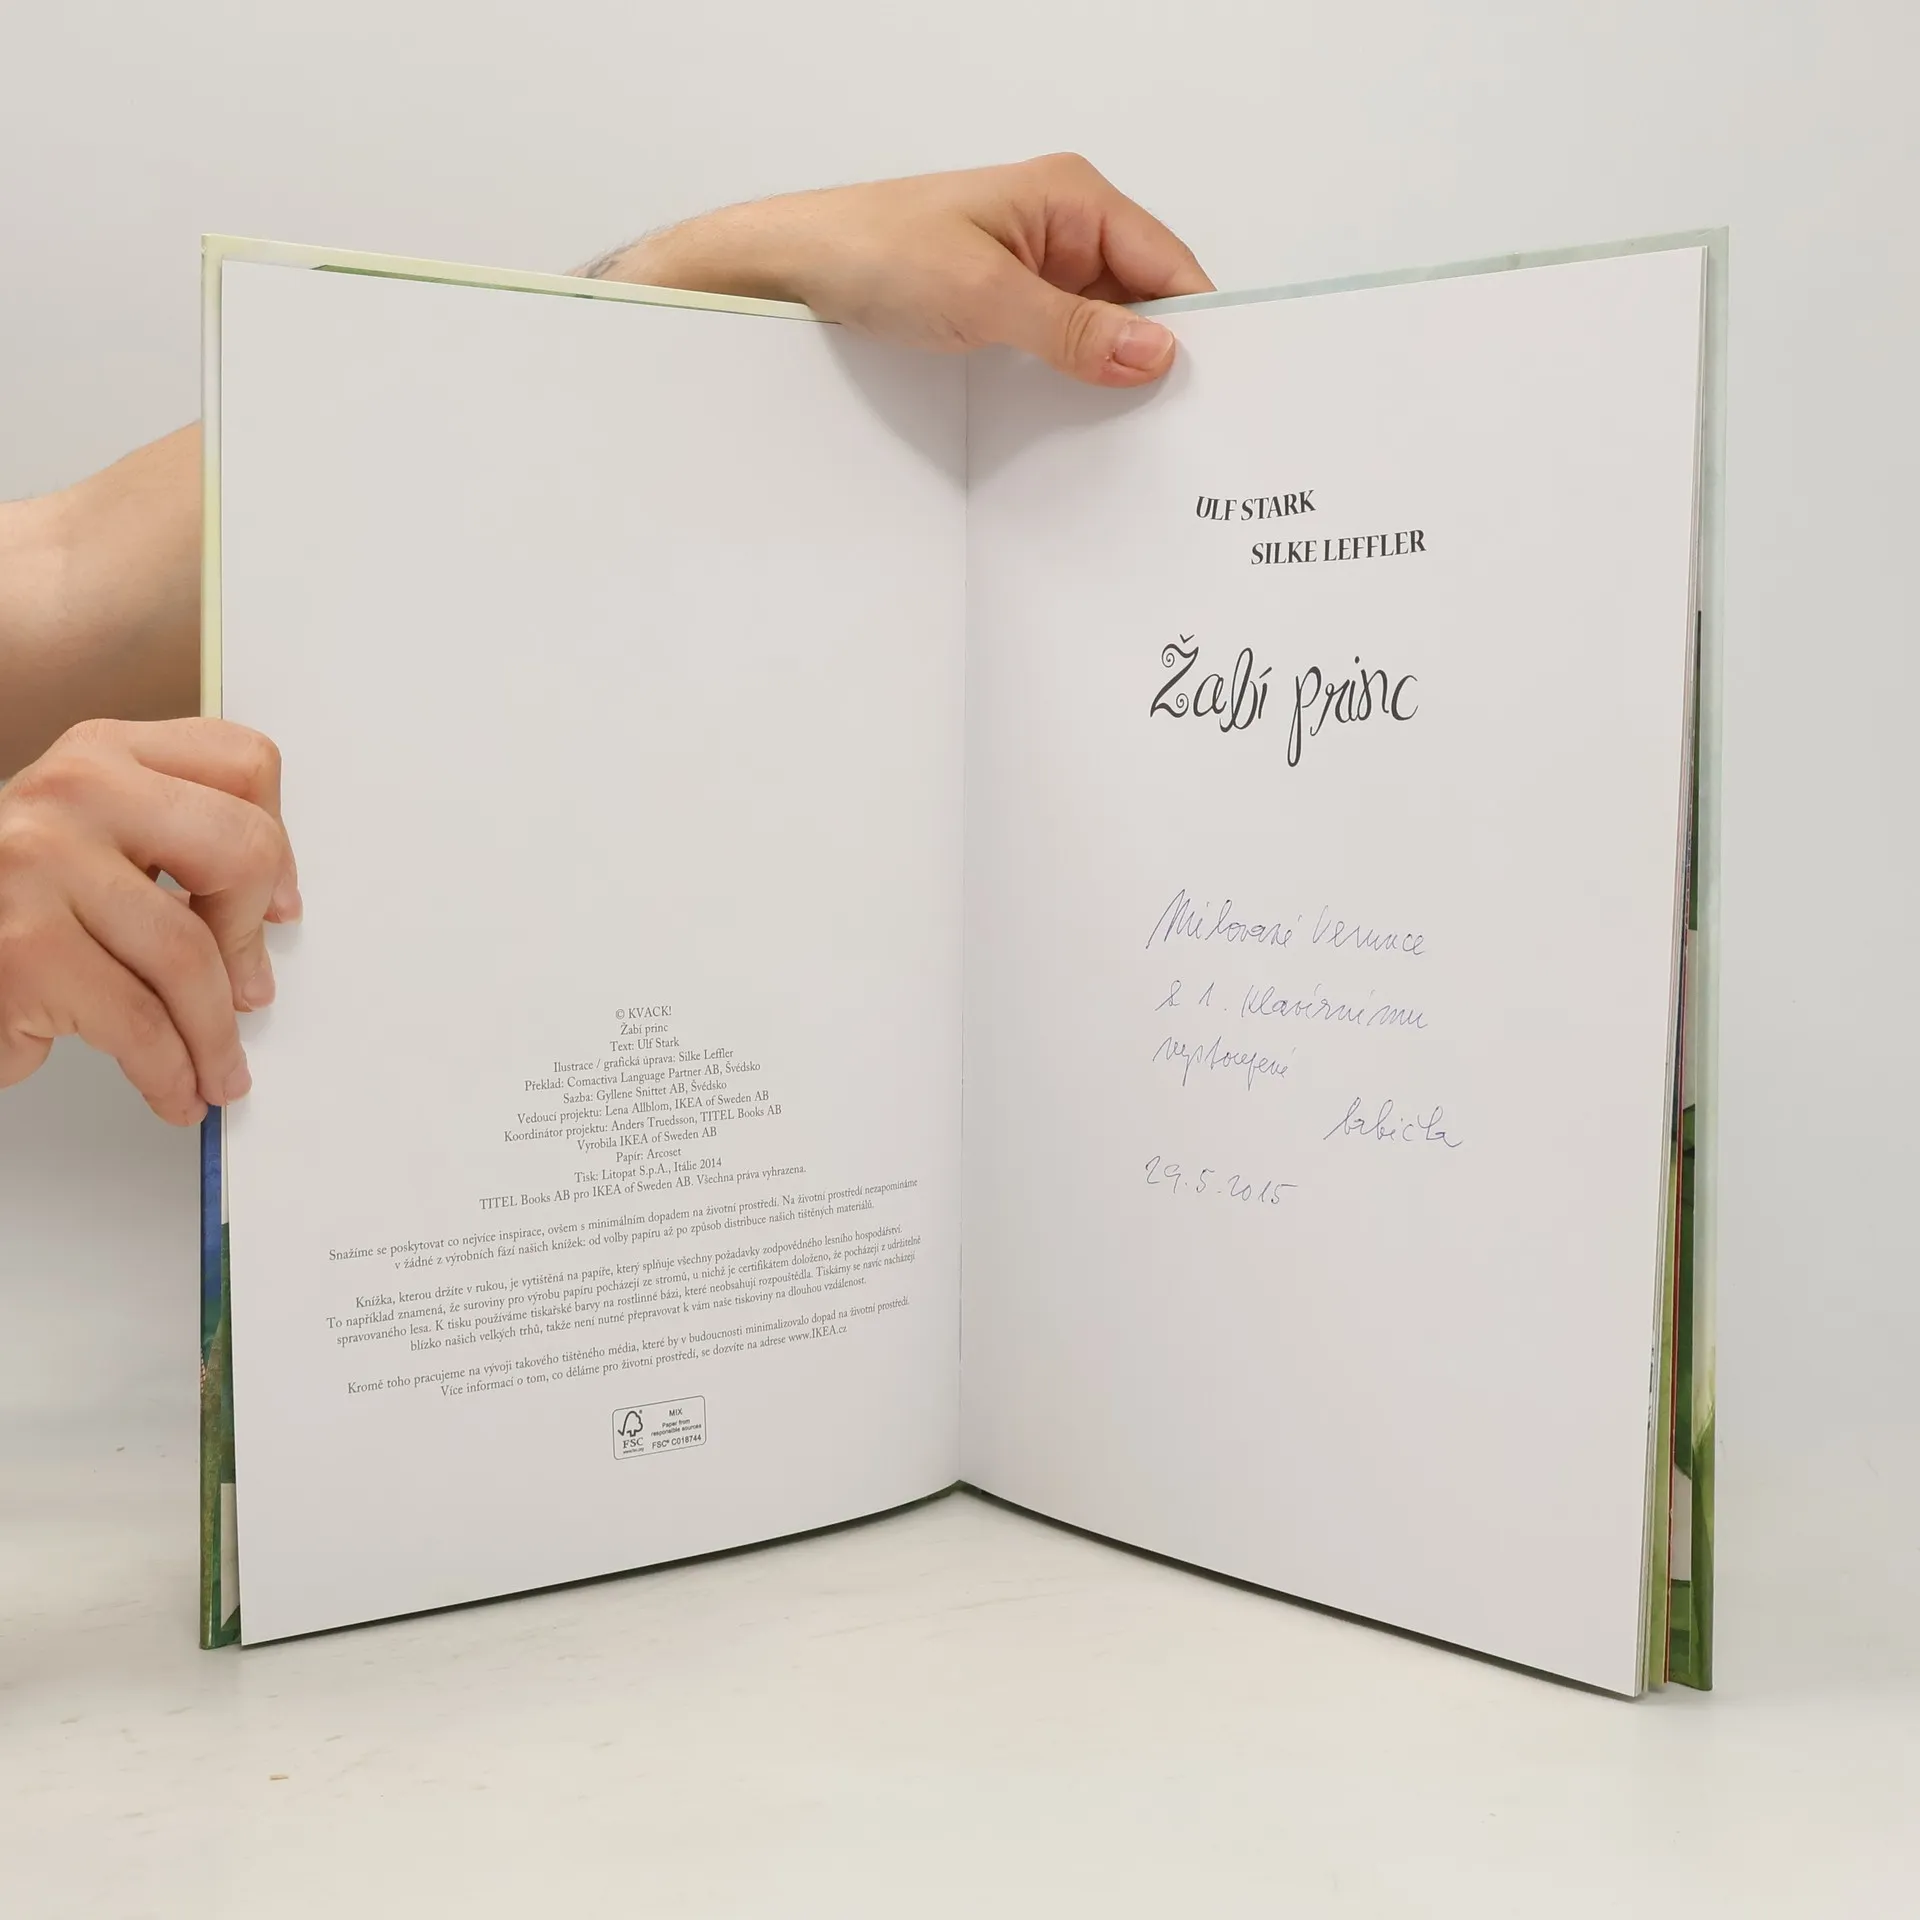 © KVACK!
Žabí princ
Text: Ulf Stark
Ilustrace / grafická úprava: Silke Leffler
Překlad: Comactiva Language Partner AB, Švédsko
Sazba: Gyllene Snittet AB, Švédsko
Vedoucí projektu: Lena Allblom, IKEA of Sweden AB
Koordinátor projektu: Anders Truedsson, TITEL Books AB
Vyrobila IKEA of Sweden AB
Papír: Arcoset
Tisk: Litopat S.p.A., Itálie 2014
TITEL Books AB pro IKEA of Sweden AB. Všechna práva vyhrazena.
Snažíme se poskytovat co nejvíce inspirace, ovšem s minimálním dopadem na životní prostředí. Na životní prostředí nezapomínáme
v žádné z výrobních fází našich knížek: od volby papíru až po způsob distribuce našich tištěných materiálů.
Knížka, kterou držíte v rukou, je vytištěná na papíře, který splňuje všechny požadavky zodpovědného lesního hospodářství.
To například znamená, že suroviny pro výrobu papíru pocházejí ze stromů, u nichž je certifikátem doloženo, že pocházejí z udržitelně
spravovaného lesa. K tisku používáme tiskařské barvy na rostlinné bázi, které neobsahují rozpouštědla. Tiskárny se navíc nacházejí
blízko našich velkých trhů, takže není nutné přepravovat k vám naše tiskoviny na dlouhou vzdálenost.
Kromě toho pracujeme na vývoji takového tištěného média, které by v budoucnosti minimalizovalo dopad na životní prostředí.
Více informací o tom, co děláme pro životní prostředí, se dozvíte na adrese www.IKEA.cz
MIX
Paper from
responsible sources
FSC
www.fsc.org
FSC® C018744
ULF STARK
SILKE LEFFLER
Žabí princ
Milované Verunce
k 1. klavírnímu
vystoupení
babička
29.5.2015